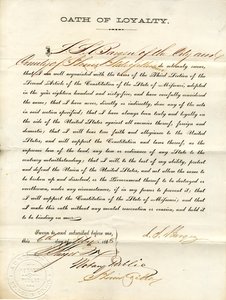 OATH OF LOYALTY.
of the City and
County of State of
do solemnly swear,
that I am well acquainted with the terms of the Third Section of the
Second Article of the Constitution of the State of Missouri, adopted
in the year eighteen hundred and sixty-five, and have carefully considered
the same; that I have never, directly or indirectly, done any of the acts
in said section specified; that I have always been truly and loyally on
the side of the United States against all enemies thereof, foreign and
domestic; that I will bear true faith and allegiance to the United
States, and will support the Constitution and laws thereof, as the
supreme law of the land, any law or ordinance of any State to the
contrary notwithstanding; that I will, to the best of my ability, protect
and defend the Union of the United States, and not allow the same to
be broken up and dissolved, or the Government thereof to be destroyed or
overthrown, under any circumstances, if in my power to prevent it; that
I will support the Constitution of the State of Missouri; and that I
make this oath without any mental reservation or evasion, and hold it
to be binding on me.
Sworn to and subscribed before me,
this day of
Notary Public